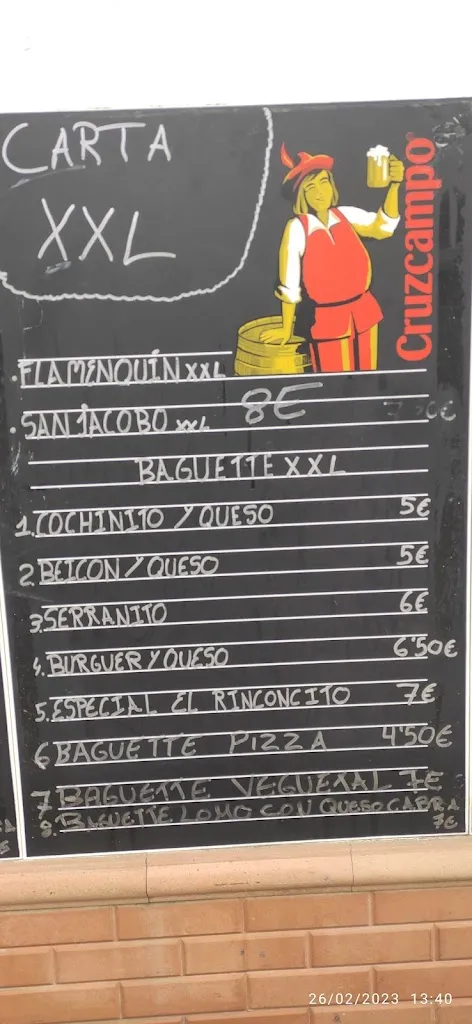 CARTA
XXL
Cruzcampo®
.FLAMENQUÍN XXL
8E
.SAN JACOBO XXL
BAGUETTE XXL
1.COCHINITO Y QUESO 5€
2.BEICON Y QUESO 5€
3.SERRANITO 6€
4.BURGUER Y QUESO 6'50€
5.ESPECIAL EL RINCONCITO 7€
6 BAGUETTE PIZZA 4'50€
7 BAGUETTE VEGUETAL 7€
8. BAGUETTE LOMO CON QUESO CABRA
7€
26/02/2023 13:40